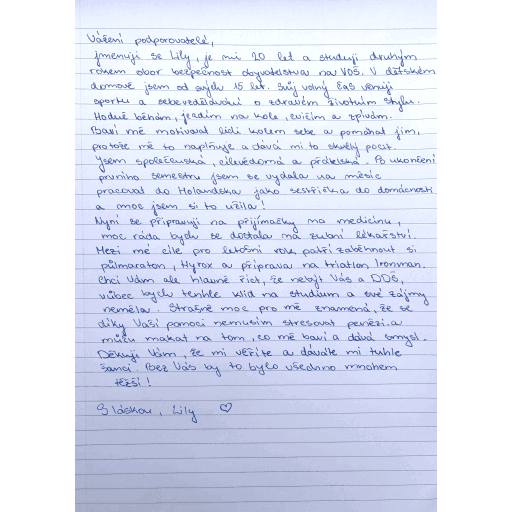 Vážení podporovatelé,
jmenuji se Lily, je mi 20 let a studuji druhým
rokem obor bezpečnost obyvatelstva na VOŠ. V dětském
domově jsem od svých 15 let. Svůj volný čas věnuji
sportu a sebevzdělávání o zdravém životním stylu.
Hodně běhám, jezdím na kole, cvičím a zpívám.
Baví mě motivovat lidi kolem sebe a pomáhat jim,
protože mě to naplňuje a dává mi to skvělý pocit.
Jsem společenská, cílevědomá a přátelská. Po ukončení
prvního semestru jsem se vydala na měsíc
pracovat do Holandska jako sestřička do domácnosti
a moc jsem si to užila!
Nyní se připravuji na přijímačky na medicínu,
moc ráda bych se dostala na zubní lékařství.
Mezi mé cíle pro letošní rok patří zaběhnout si
půlmaraton, Hyrox a příprava na triatlon Ironman.
Chci Vám ale hlavně říct, že nebýt Vás a DDŠ,
vůbec bych tenhle klid na studium a své zájmy
neměla. Strašně moc pro mě znamená, že se
díky Vaší pomoci nemusím stresovat penězi a
můžu makat na tom, co mě baví a dává smysl.
Děkuji Vám, že mi věříte a dáváte mi tuhle
šanci. Bez Vás by to bylo všechno mnohem
těžší!
S láskou, Lily ♡